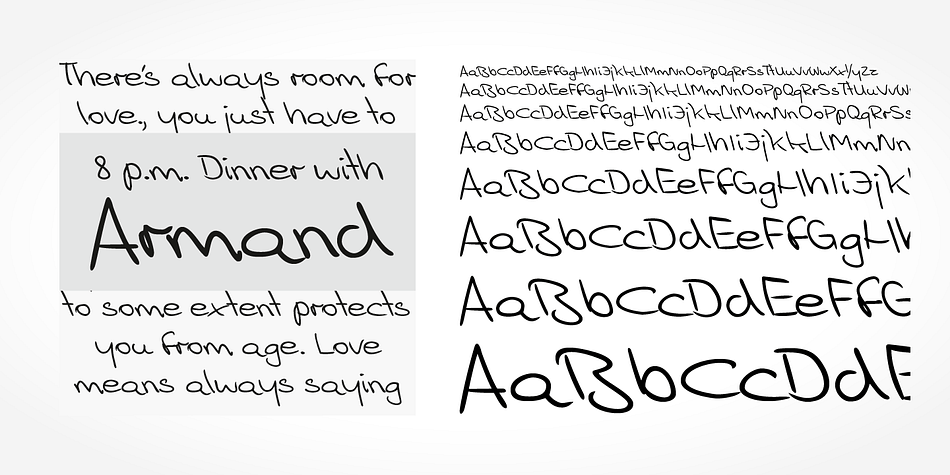 There's always room for
love., you just have to
8 p.m. Dinner with
Armand
to some extent protects
you from age. Love
means always saying
AaBbCcDdEeFfGgHhIiJjKkLlMmNnOoPpQqRrSsTtUuVvWwXxYyZz
AaBbCcDdEeFfGgHhIiJjKkLlMmNnOoPpQqRrSsTtUuVvWw
AaBbCcDdEeFfGgHhIiJjKkLlMmNnOoPpQqRrSs
AaBbCcDdEeFfGgHhIiJjKkLlMmNn
AaBbCcDdEeFfGgHhIiJjk
AaBbCcDdEeFfGgH
AaBbCcDdEeFfG
AaBbCcDdE